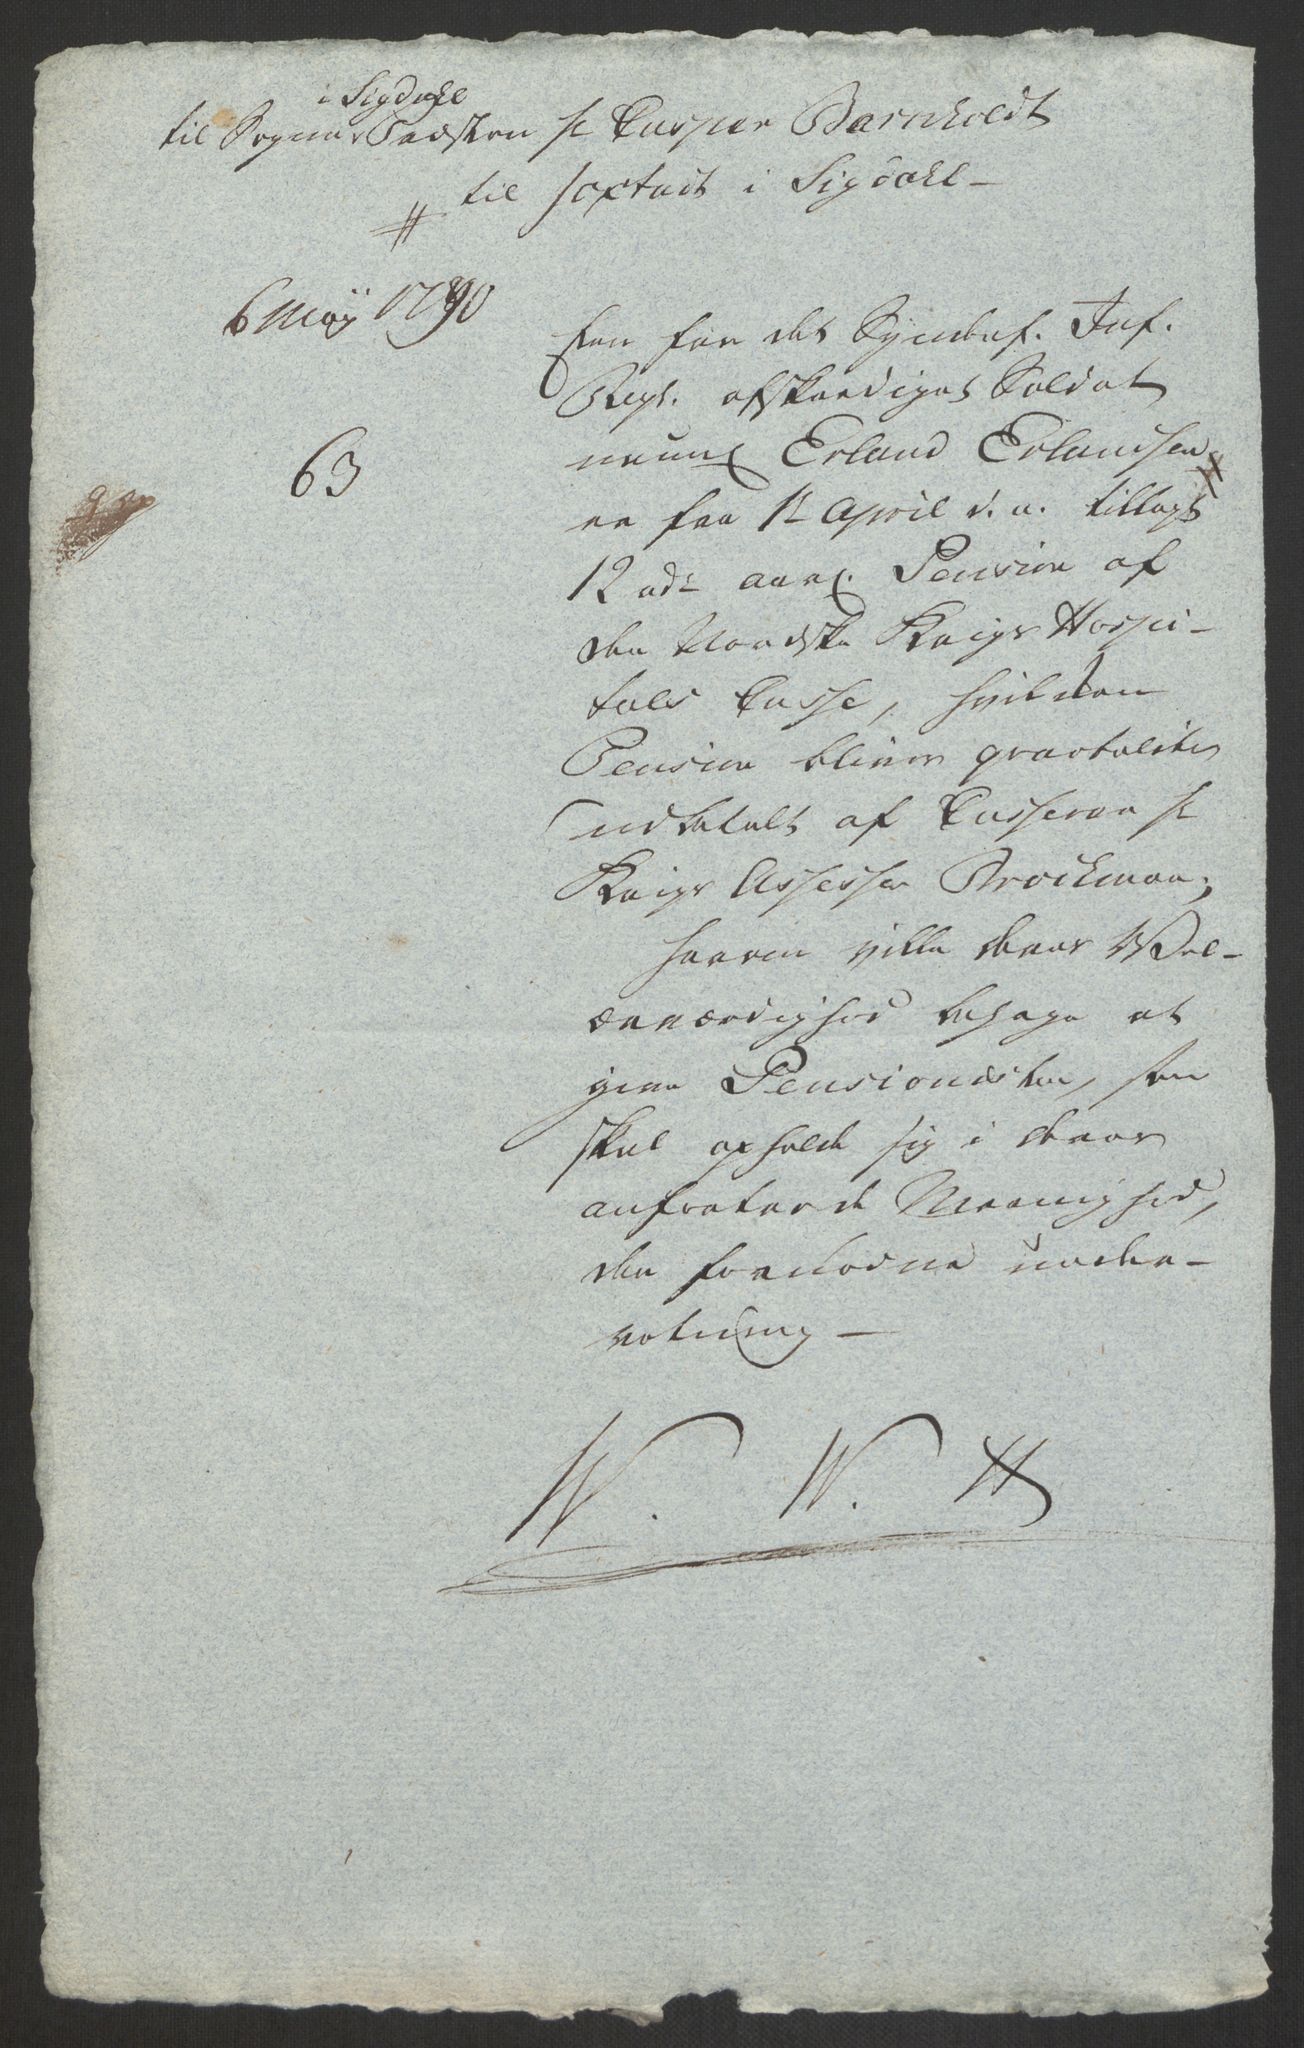 i Sigdahl
til Sogne Præsten hr Casper Barnholdt
til i Sigdahl –
#
6 Maÿ 1790
63
Een fra det Syndenf. Inf.
Regt. afskeediget Soldat
navnl Erland Erlandsen #
er fra 12 April d. a. tillagt
12 rdr aarl. Pension af
den Nordske Krigs Hospi-
tals Casse, hvilken
Pension bliver qvartaliter
udbetalt af Casseren hr
Krigs Assessor Brockman;
herom ville deres Vel-
ærværdighed behage at
give Pensionisten, som
skal opholde sig i deres
anfortroede Meenighed,
den fornødne under-
retning –
W. W. H